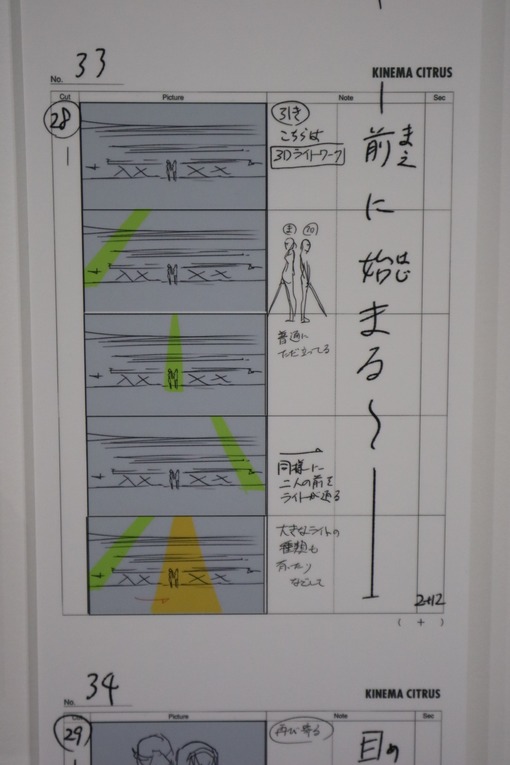 No. 33
KINEMA CITRUS
Cut Picture Note Sec
28
引き
こちらは
3Dライトワーク
前に始まる〜
まえ
はじ
普通に
ただ立ってる
同様に
二人の前を
ライトが通る
大きなライトの
種類も
などして
2+12
( + )
No. 34
KINEMA CITRUS
Cut Picture Note Sec
29
再び寄る
目の